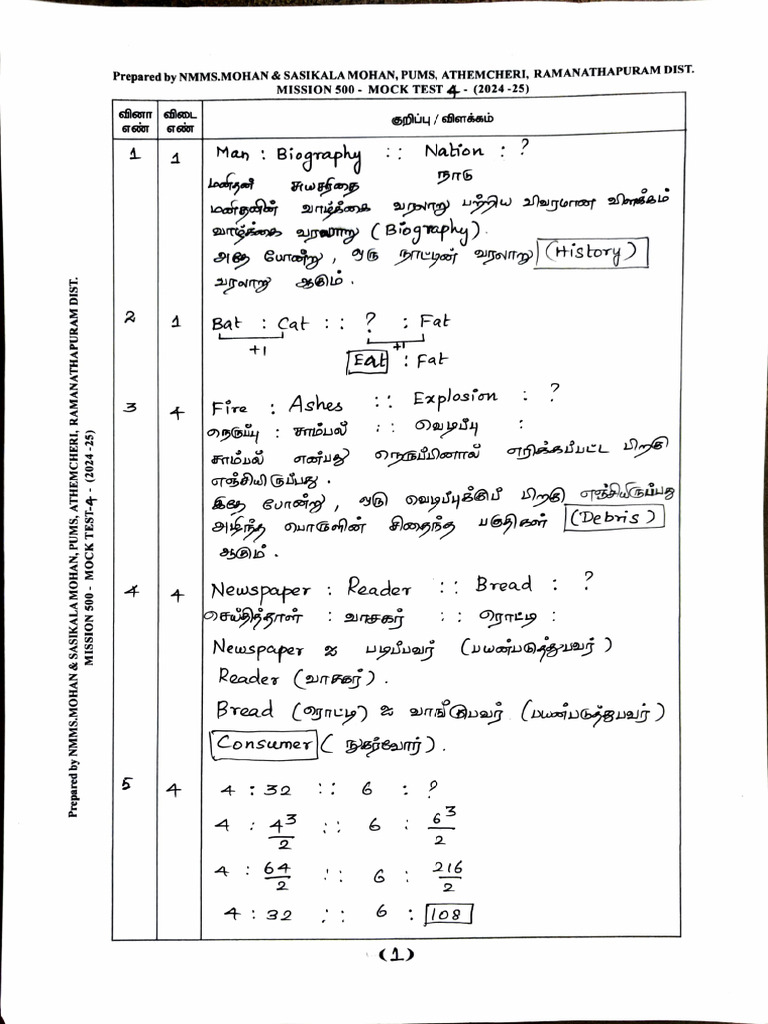 Prepared by NMMS.MOHAN & SASIKALA MOHAN, PUMS, ATHEMCHERI, RAMANATHAPURAM DIST.
MISSION 500 - MOCK TEST 4 - (2024 -25)
வினா எண் விடை எண் குறிப்பு / விளக்கம்
1 1 Man : Biography :: Nation : ?
மனிதன் சுயசரிதை நாடு
மனிதனின் வாழ்க்கை வரலாறு பற்றிய விவரமான விளக்கம்
வாழ்க்கை வரலாறு (Biography).
அதே போன்று, ஒரு நாட்டின் வரலாறு (History)
வரலாறு ஆகும்.
2 1 Bat : Cat :: ? : Fat
+1 +1
Eat : Fat
3 4 Fire : Ashes :: Explosion : ?
நெருப்பு : சாம்பல் :: வெடிப்பு :
சாம்பல் என்பது நெருப்பினால் எரிக்கப்பட்ட பிறகு
எஞ்சியிருப்பது.
இதே போன்று, ஒரு வெடிப்புக்குப் பிறகு எஞ்சியிருப்பது
அழிந்த பொருளின் சிதைந்த பகுதிகள் (Debris)
ஆகும்.
4 4 Newspaper : Reader :: Bread : ?
செய்தித்தாள் : வாசகர் :: ரொட்டி :
Newspaper ஐ படிப்பவர் (பயன்படுத்துபவர்)
Reader (வாசகர்).
Bread (ரொட்டி) ஐ வாங்குபவர் (பயன்படுத்துபவர்)
Consumer (நுகர்வோர்).
5 4 4 : 32 :: 6 : ?
4 : 4³/2 :: 6 : 6³/2
4 : 64/2 :: 6 : 216/2
4 : 32 :: 6 : 108
(1)
Prepared by NMMS.MOHAN & SASIKALA MOHAN, PUMS, ATHEMCHERI, RAMANATHAPURAM DIST.
MISSION 500 - MOCK TEST-4 - (2024 -25)